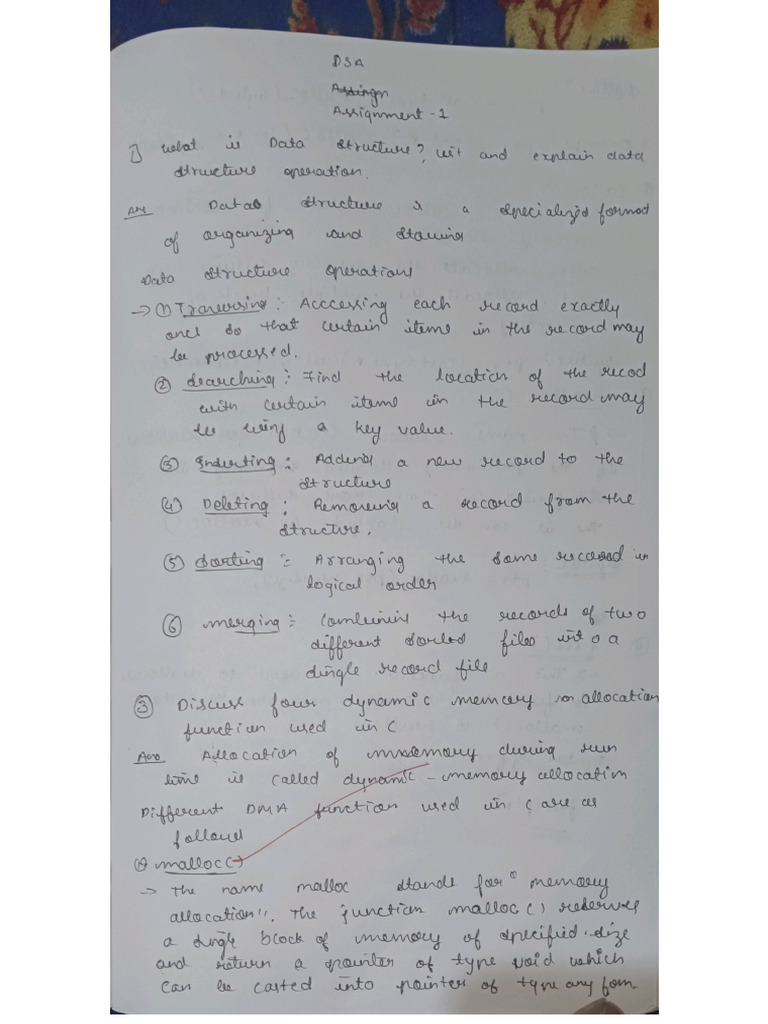 DSA
Assingn
Assignment -1
1] what is Data structure? list and explain data
structure operation.
Ans Data structure is a specialized format
of organizing and storing
Data structure operations
→ (1) Traversing : Acccessing each record exactly
once so that certain items in the record may
be processed.
(2) Searching : Find the location of the recod
with certain items in the record may
be using a key value.
(3) Inserting : Adding a new record to the
structure
(4) Deleting : Removing a record from the
structure.
(5) Sorting := Arranging the some record in
logical order
(6) merging := Combining the records of two
different sorted files into a
single record file
(3) Discuss four dynamic memory allocation
function used in C
Ans Allocation of memory during run
time is called dynamic - memory allocation
Different DMA function used in C are as
follows
(1) malloc( )
→ The name malloc stands for "memory
allocation". The function malloc( ) reserves
a single block of memory of specified size
and return a pointer of type void which
can be casted into pointer of type any form